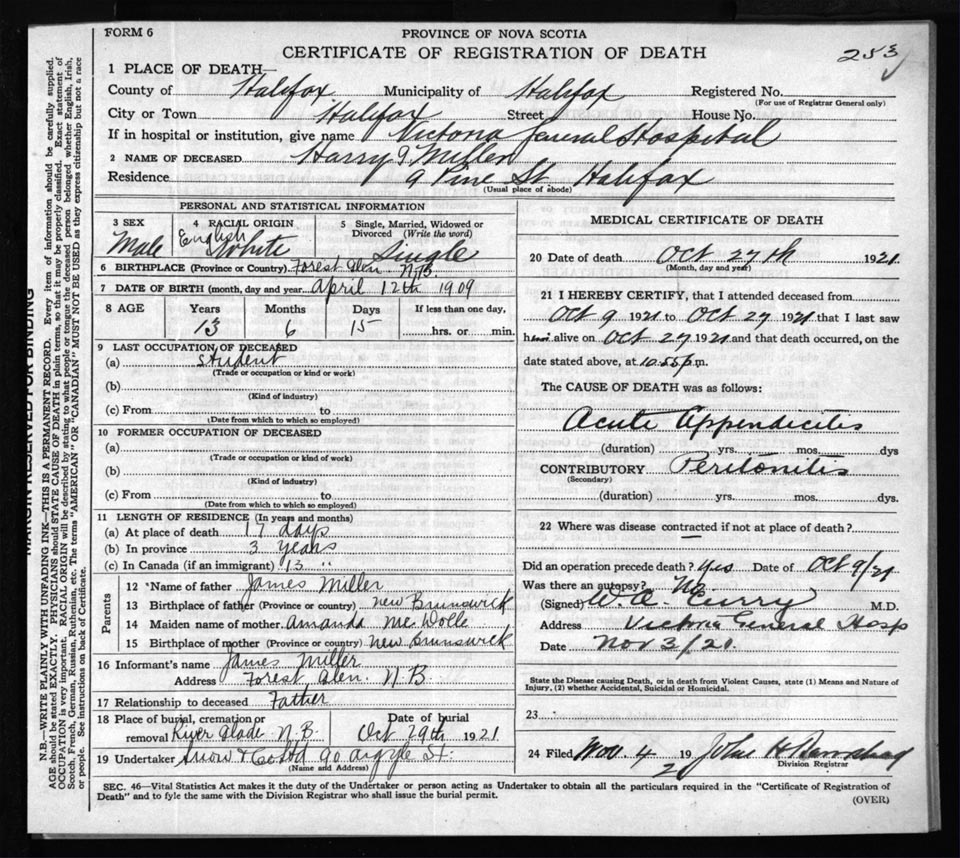 FORM 6
PROVINCE OF NOVA SCOTIA
CERTIFICATE OF REGISTRATION OF DEATH
253
1 PLACE OF DEATH
County of Halifax Municipality of Halifax Registered No.
(For use of Registrar General only)
City or Town Halifax Street House No.
If in hospital or institution, give name Victoria General Hospital
2 NAME OF DECEASED Harry J Miller
Residence 9 Pine St. Halifax
(Usual place of abode)
PERSONAL AND STATISTICAL INFORMATION
3 SEX 4 RACIAL ORIGIN 5 Single, Married, Widowed or Divorced (Write the word)
Male English White Single
6 BIRTHPLACE (Province or Country) Forest Glen N.B.
7 DATE OF BIRTH (month, day and year April 12th 1909
8 AGE Years Months Days If less than one day,
13 6 15 hrs. or min.
9 LAST OCCUPATION OF DECEASED
(a) student
(Trade or occupation or kind or work)
(b)
(Kind of industry)
(c) From to
(Date from which to which so employed)
10 FORMER OCCUPATION OF DECEASED
(a)
(Trade or occupation or kind of work)
(b)
(Kind of industry)
(c) From to
(Date from which to which so employed)
11 LENGTH OF RESIDENCE (In years and months)
(a) At place of death 17 days
(b) In province 3 years
(c) In Canada (if an immigrant) 13 "
Parents
12 Name of father James Miller
13 Birthplace of father (Province or country) New Brunswick
14 Maiden name of mother Amanda Mc
15 Birthplace of mother (Province or country) New Brunswick
16 Informant's name James Miller
Address Forest Glen. N.B.
17 Relationship to deceased Father
18 Place of burial, cremation or removal River Glade N.B. Date of burial Oct 29th 1921
19 Undertaker Snow & Co Ltd 90 Argyle St.
(Name and Address)
MEDICAL CERTIFICATE OF DEATH
20 Date of death Oct 27th 1921
(Month, day and year)
21 I HEREBY CERTIFY, that I attended deceased from
Oct 9 1921 to Oct 27 1921 that I last saw
h alive on Oct 27 1921 and that death occurred, on the
date stated above, at 10.55 p.m.
The CAUSE OF DEATH was as follows:
Acute Appendicitis
(duration) yrs. mos. dys
CONTRIBUTORY Peritonitis
(Secondary)
(duration) yrs. mos. dys.
22 Where was disease contracted if not at place of death?
Did an operation precede death? yes Date of Oct 9/21
Was there an autopsy? No
(Signed) W. A. Curry M.D.
Address Victoria General Hosp
Date Nov 3/21.
State the Disease causing Death, or in death from Violent Causes, state (1) Means and Nature of
Injury, (2) whether Accidental, Suicidal or Homicidal.
23
24 Filed Nov. 4 1921 John H
Division Registrar
SEC. 46—Vital Statistics Act makes it the duty of the Undertaker or person acting as Undertaker to obtain all the particulars required in the "Certificate of Registration of
Death" and to fyle the same with the Division Registrar who shall issue the burial permit.
(OVER)
MARGIN RESERVED FOR BINDING
N.B.—WRITE PLAINLY WITH UNFADING INK—THIS IS A PERMANENT RECORD. Every item of information should be carefully supplied.
AGE should be stated EXACTLY. PHYSICIANS should STATE CAUSE OF DEATH in plain terms, so that it may be properly classified. Exact statement of
OCCUPATION is very important. RACIAL ORIGIN will be described by stating to what people or tongue the deceased person belonged whether English, Irish,
Scotch, French, German, Russian, Ruthenian, etc. The terms "AMERICAN" OR "CANADIAN" MUST NOT BE USED as they express citizenship but not a race
or people. See instructions on back of Certificate.